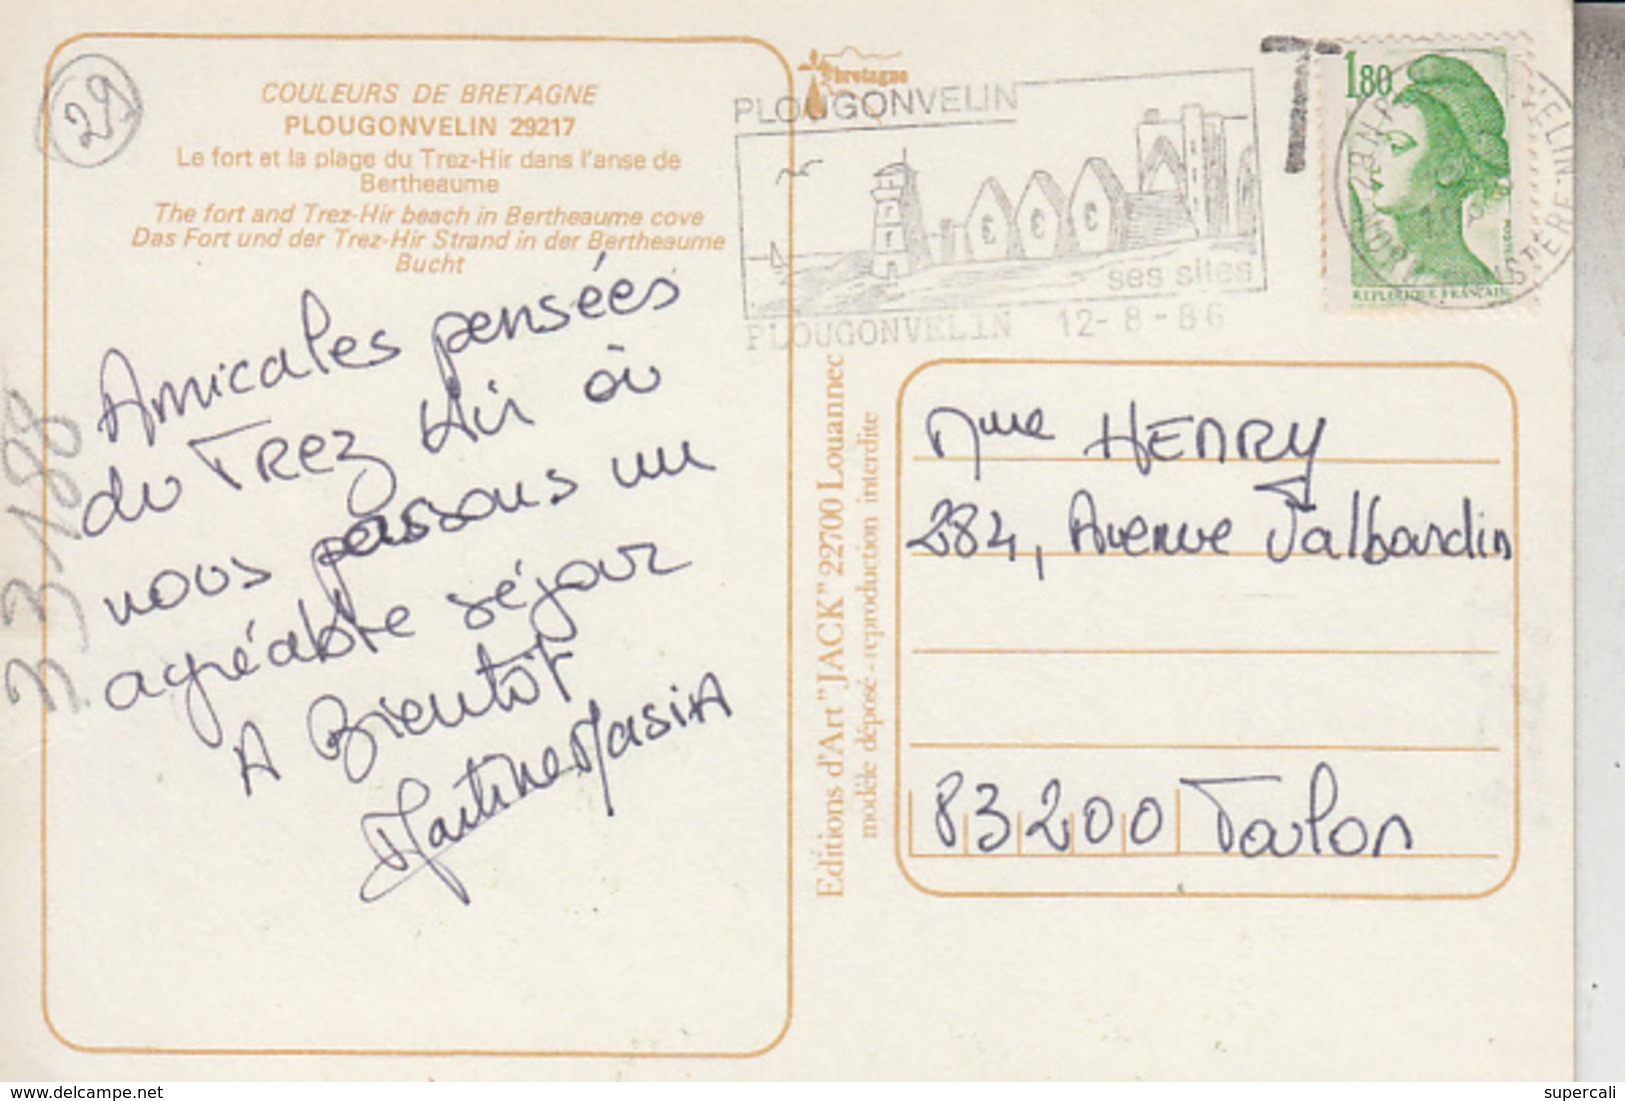 29
COULEURS DE BRETAGNE
PLOUGONVELIN 29217
Le fort et la plage du Trez-Hir dans l'anse de
Bertheaume
The fort and Trez-Hir beach in Bertheaume cove
Das Fort und der Trez-Hir Strand in der Bertheaume
Bucht
Amicales pensées
du Trez Hir où
nous passons un
agréable séjour
A Bientôt
Martine Masia
33188
bretagne
PLOUGONVELIN
ses sites
PLOUGONVELIN 12-8-86
T
1,80
REPUBLIQUE FRANÇAISE
Editions d'Art "JACK" 22700 Louannec
modèle déposé - reproduction interdite
Mme HENRY
284, Avenue Valbourdin
83200 Toulon
delcampe.net
supercali